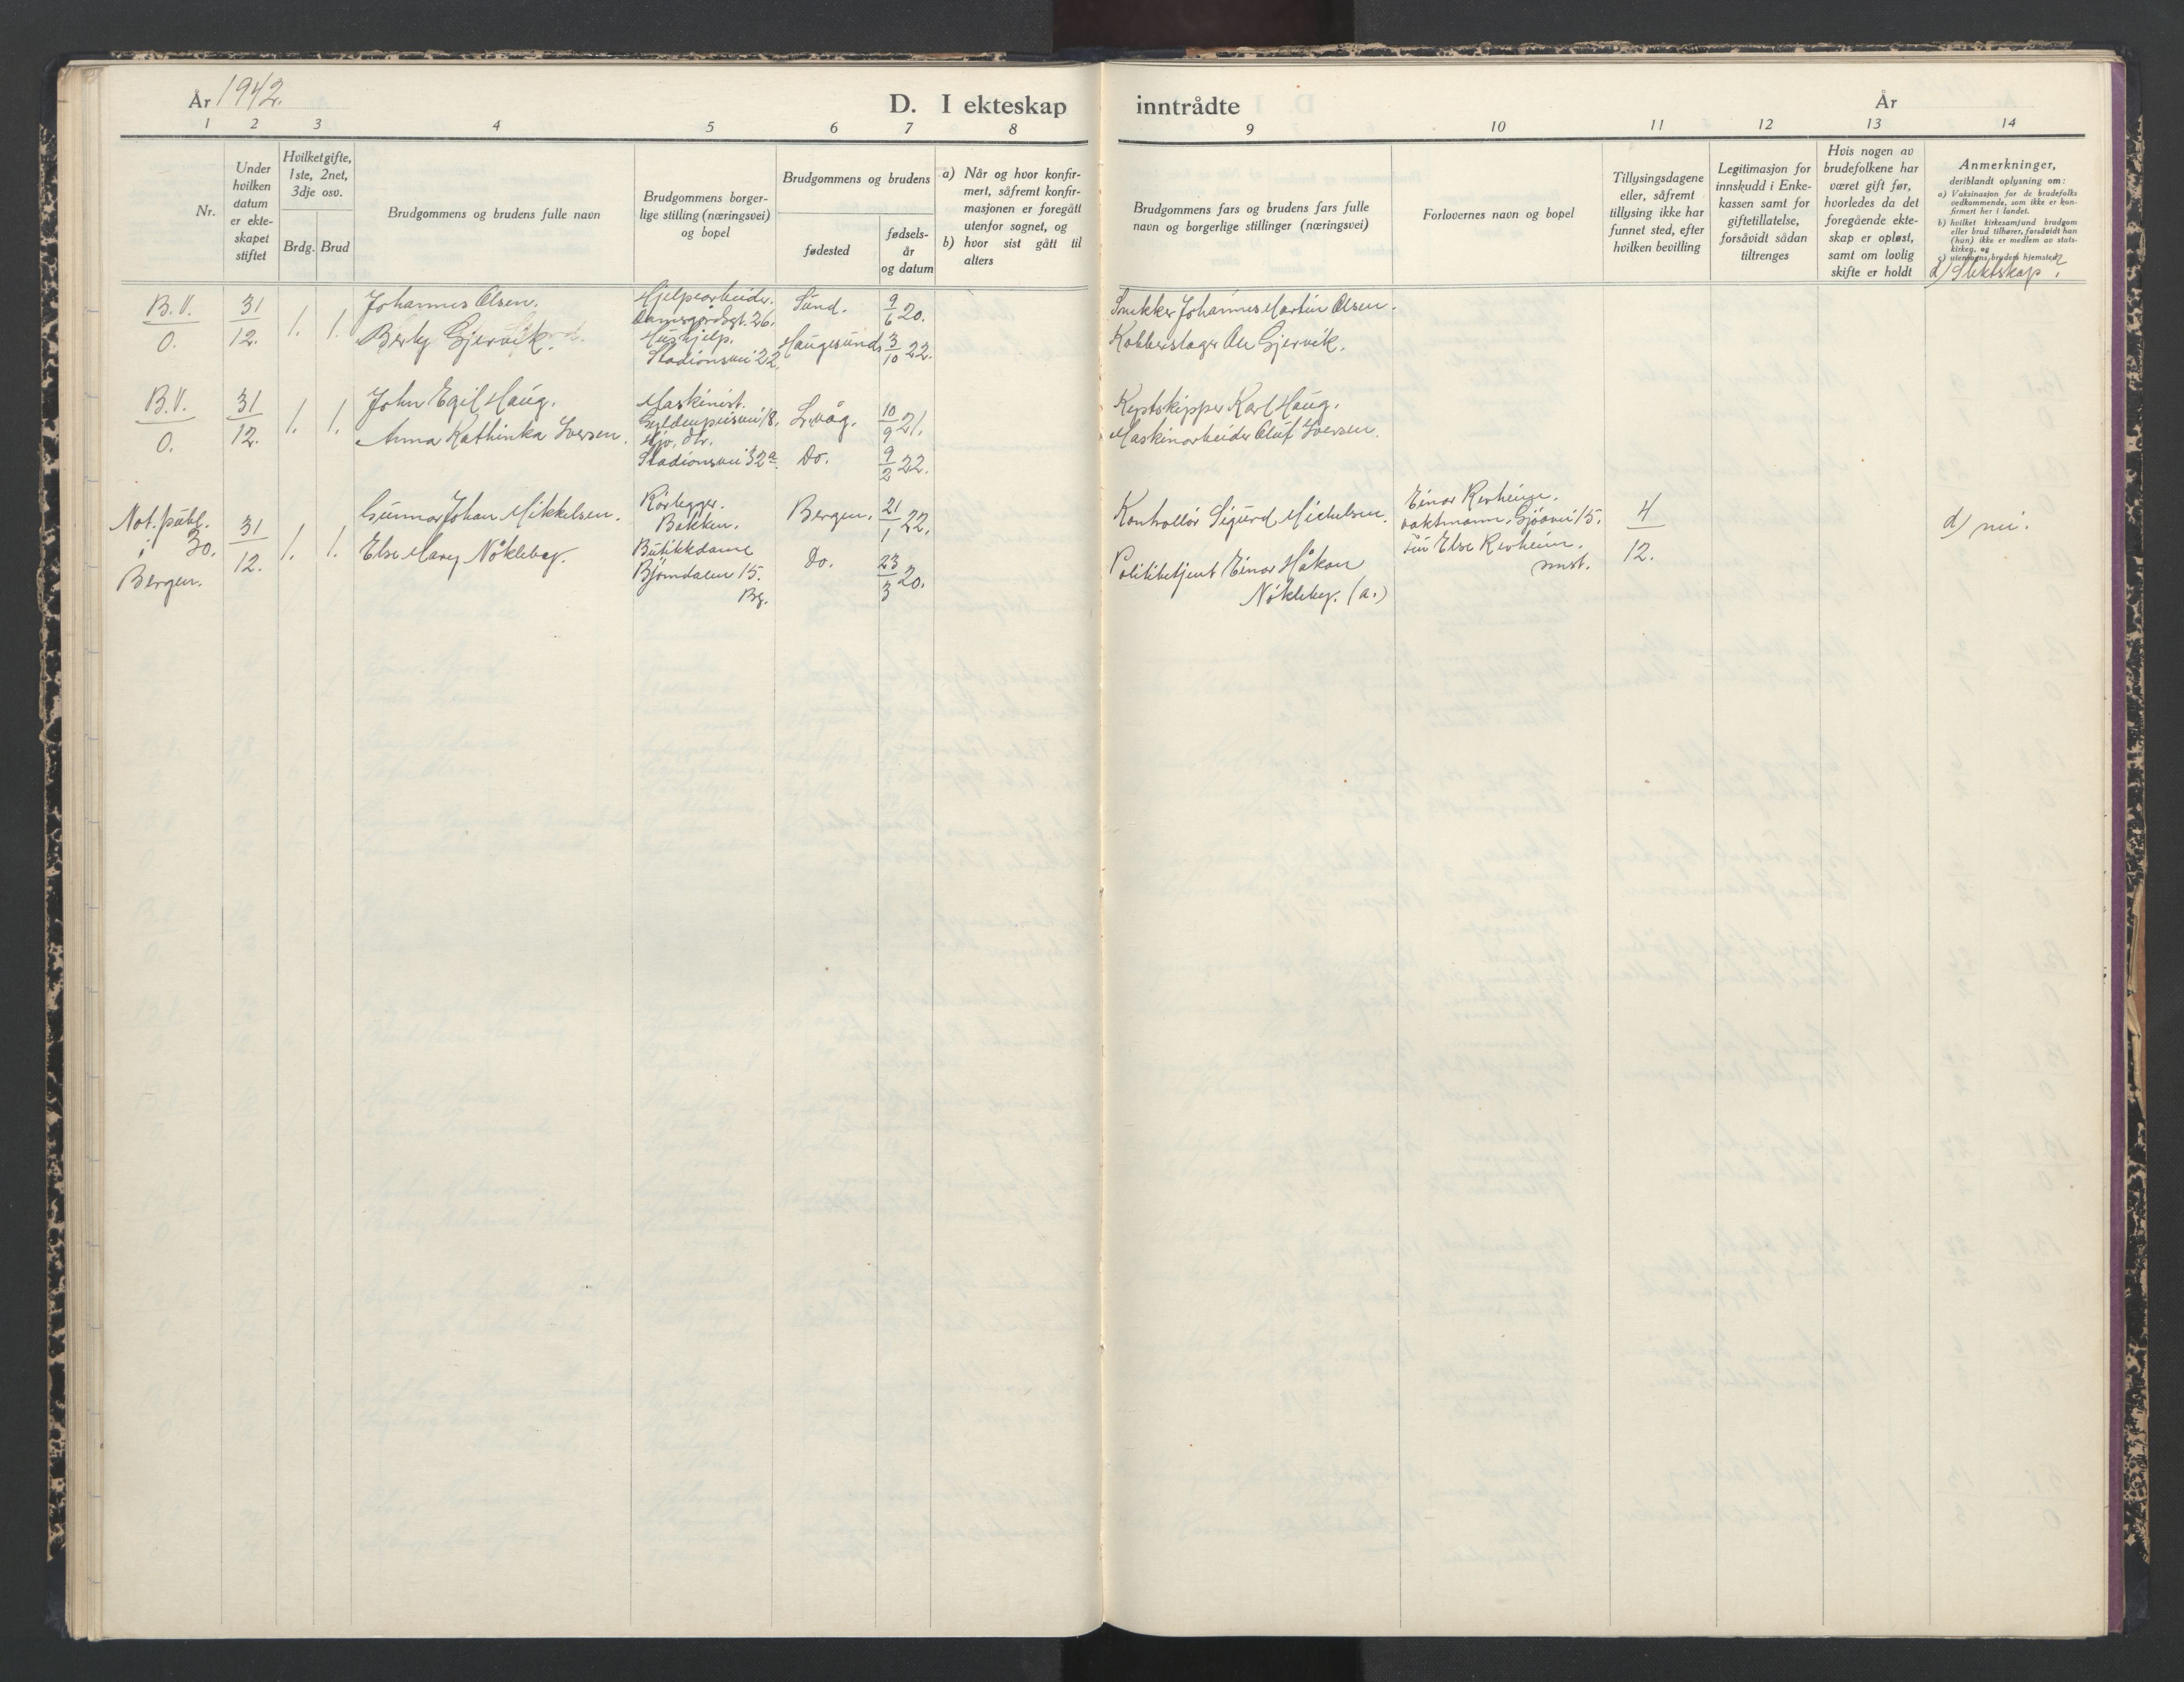 År 1942.
D. I ekteskap inntrådte
År
1 2 3 4 5 6 7 8 9 10 11 12 13 14
Nr.
Under
hvilken
datum
er ekte-
skapet
stiftet
Hvilket gifte,
1ste, 2net,
3dje osv.
Brdg. Brud
Brudgommens og brudens fulle navn
Brudgommens borger-
lige stilling (næringsvei)
og bopel
Brudgommens og brudens
fødested
fødsels-
år
og datum
a) Når og hvor konfir-
mert, såfremt konfir-
masjonen er foregått
utenfor sognet, og
b) hvor sist gått til
alters
Brudgommens fars og brudens fars fulle
navn og borgerlige stillinger (næringsvei)
Forlovernes navn og bopel
Tillysingsdagene
eller, såfremt
tillysing ikke har
funnet sted, efter
hvilken bevilling
Legitimasjon for
innskudd i Enke-
kassen samt for
giftetillatelse,
forsåvidt sådan
tiltrenges
Hvis nogen av
brudefolkene har
været gift før,
hvorledes da det
foregående ekte-
skap er opløst,
samt om lovlig
skifte er holdt
Anmerkninger,
deriblandt oplysning om:
a) Vaksinasjon for de brudefolks
vedkommende, som ikke er kon-
firmert her i landet.
b) hvilket kirkesamfund brudgom
eller brud tilhører, forsåvidt han
(hun) ikke er medlem av stats-
kirken, og
c) utensogns bruders hjemsted.
d) Slektskap?
B.V.
0.
31
12.
1. 1.
Johannes Olsen.
Berly Gjervik.
Hjelpearbeider.
Damsgårdsgt. 26.
Hushjelp.
Stadionsvei 22.
Sund.
Haugesund.
9
6 20.
3
10 22.
Snekker Johannes Martin Olsen.
Kobberslager Ole Gjervik.
B.V.
0.
31
12.
1. 1.
John Egil Haug.
Anna Kathinka Iversen.
Maskinist.
Gyldenprisvei 18.
Stadionsvei 32a.
L.våg.
Do.
10
9 21.
9
2 22.
Karl Haug.
Maskinarbeider Oluf Iversen.
Not. publ.
i 30.
Bergen.
31
12.
1. 1.
Gunnar Johan Mikkelsen.
Else Mary Nökleby.
Rörlegger.
Bakken.
Butikkdame
Björndalen 15.
Bg.
Bergen.
Do.
21
1 22.
23
3 20.
Kontrollör Sigurd Michelsen.
Politibetjent Einar Håkon
Nökleby. (a.)
Einar Revheim.
vaktmann. 15.
Else Revheim.
smst.
4
12.
d) nei.